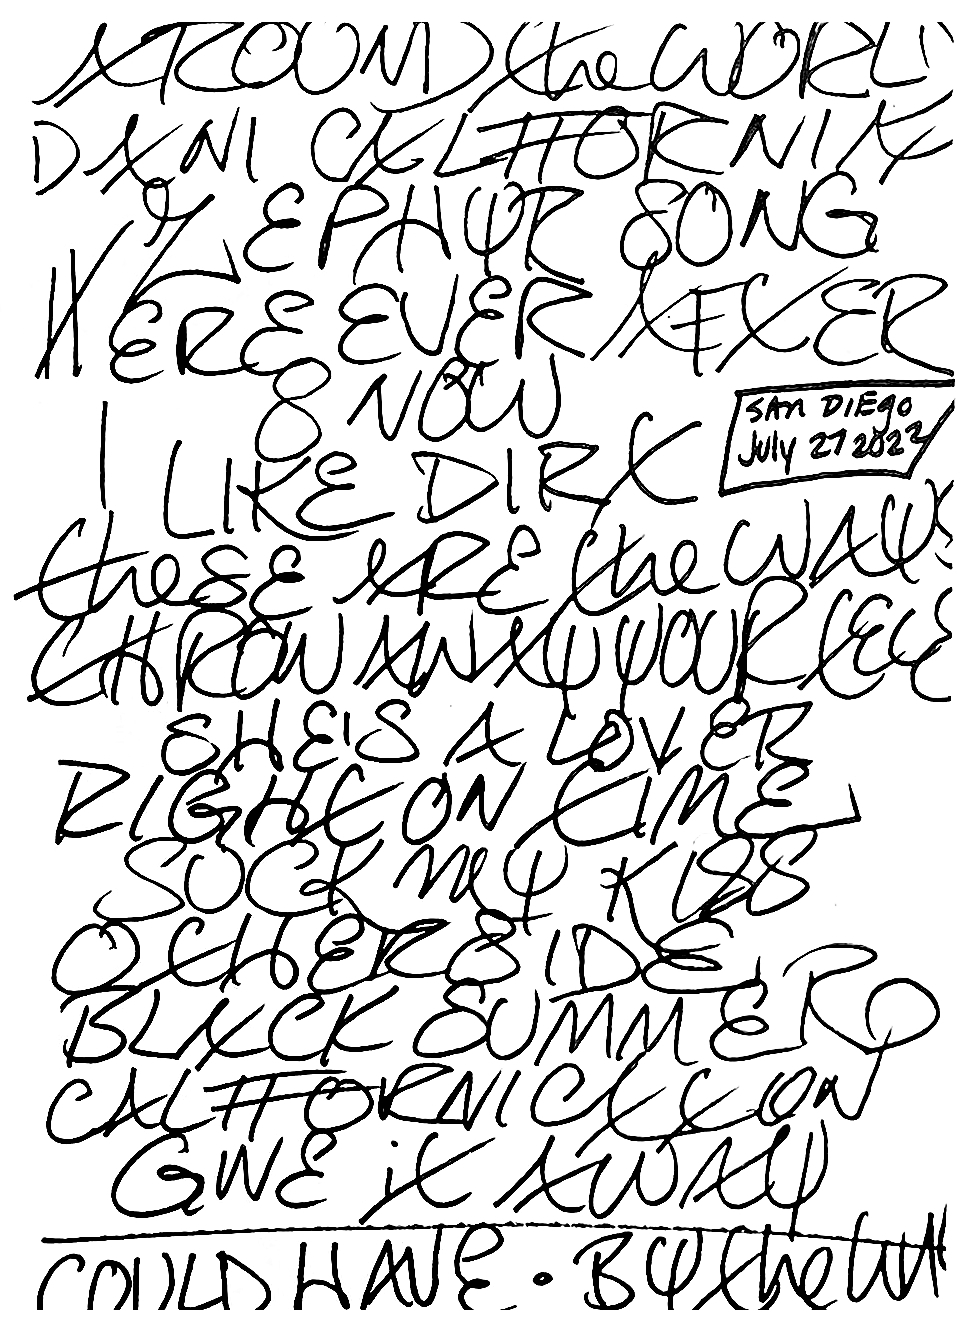 AROUND the WORLD
DANI CALIFORNIA
ZEPHYR SONG
HERE EVER AFTER
& NOW
SAN DIEGO
July 27 2022
I LIKE DIRT
theSE ARE the WAYS
THROW AWAY YOUR TELE
SHE'S A LOVER
RIGHT ON TIME
SUCK MY KISS
OTHERSIDE
BLACK SUMMER
CALIFORNICATION
GIVE iT AWAY
COULD HAVE • BY the WA